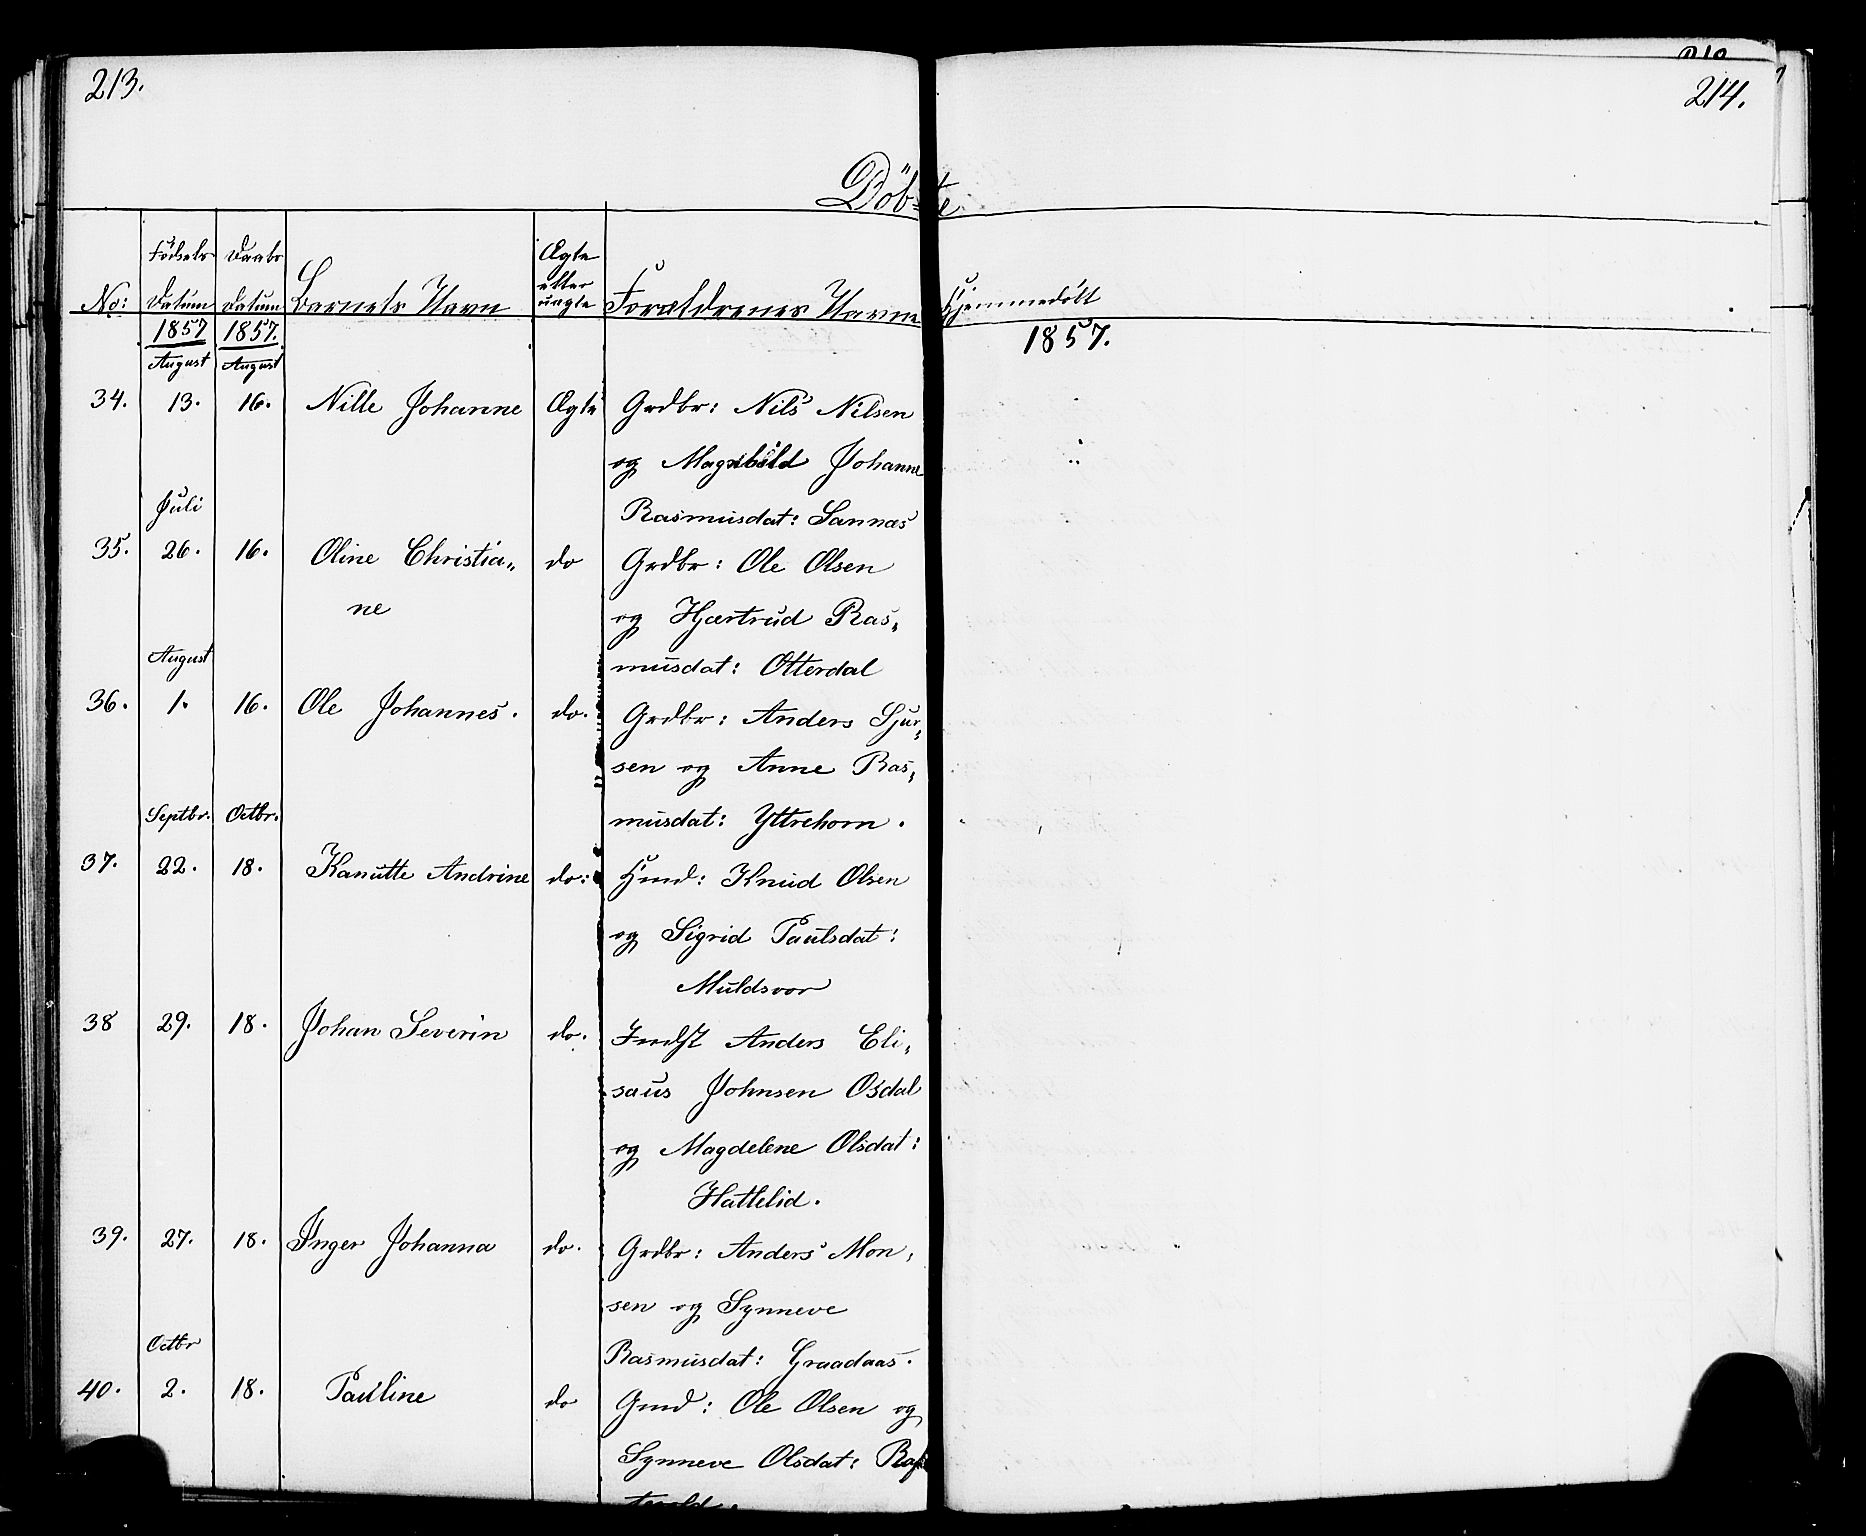 213.
214.
Döbte
No: Födsels Datum Daabs Datum Barnets Navn Ægte eller uægte Forældrenes Navne Hjemmedöbt
1857 1857. 1857.
August August
34. 13. 16. Nille Johanne Ægte Grdbr: Nils Nilsen
og Johanne
Rasmusdat: Sannæs
Juli
35. 26. 16. Oline Christia„ do Grdbr: Ole Olsen
ne og Hjærtrud Ras„
August musdat: Otterdal
36. 1. 16. Ole Johannes. do. Grdbr: Anders Sjur„
sen og Anne Ras„
Septbr. Octbr. musdat: Yttrehorn.
37. 22. 18. Kanutte Andrine do: Hmd: Knud Olsen
og Sigrid Paulsdat:
Muldsvor
38 29. 18. Johan Severin do. Indst Anders Eli„
saus Johnsen Osdal
og Magdelene Olsdat:
Hattelid.
39. 27. 18. Inger Johanna do. Grdbr: Anders Mon„
sen og Synneve
Octbr Rasmusdat: Graadaas.
40. 2. 18. Pauline do Gmd: Ole Olsen og
Synneve Olsdat: